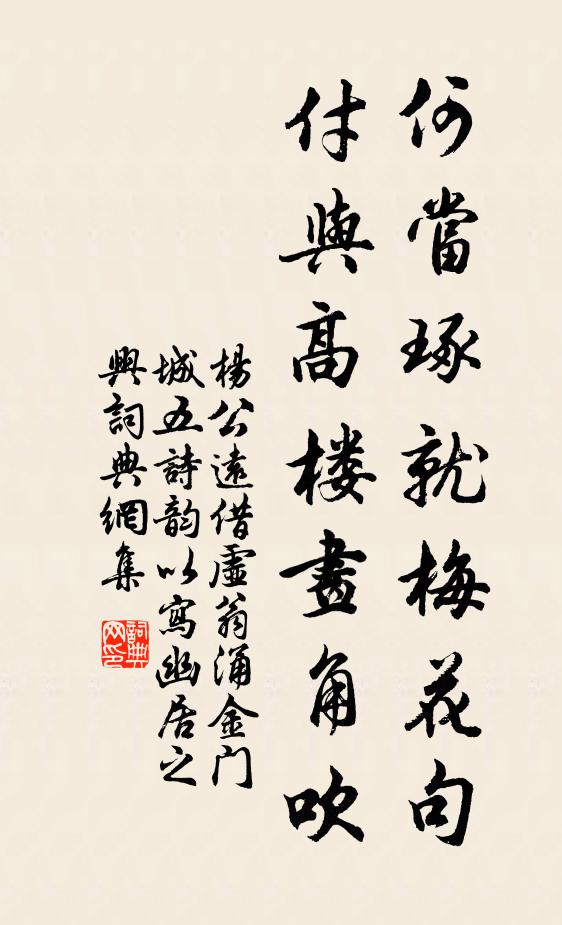 何當琢就梅花句
付與高樓畫角吹
楊公遠借虛翁涌金門
城五詩韵以寫幽居之
興詞典網集
詞典網印